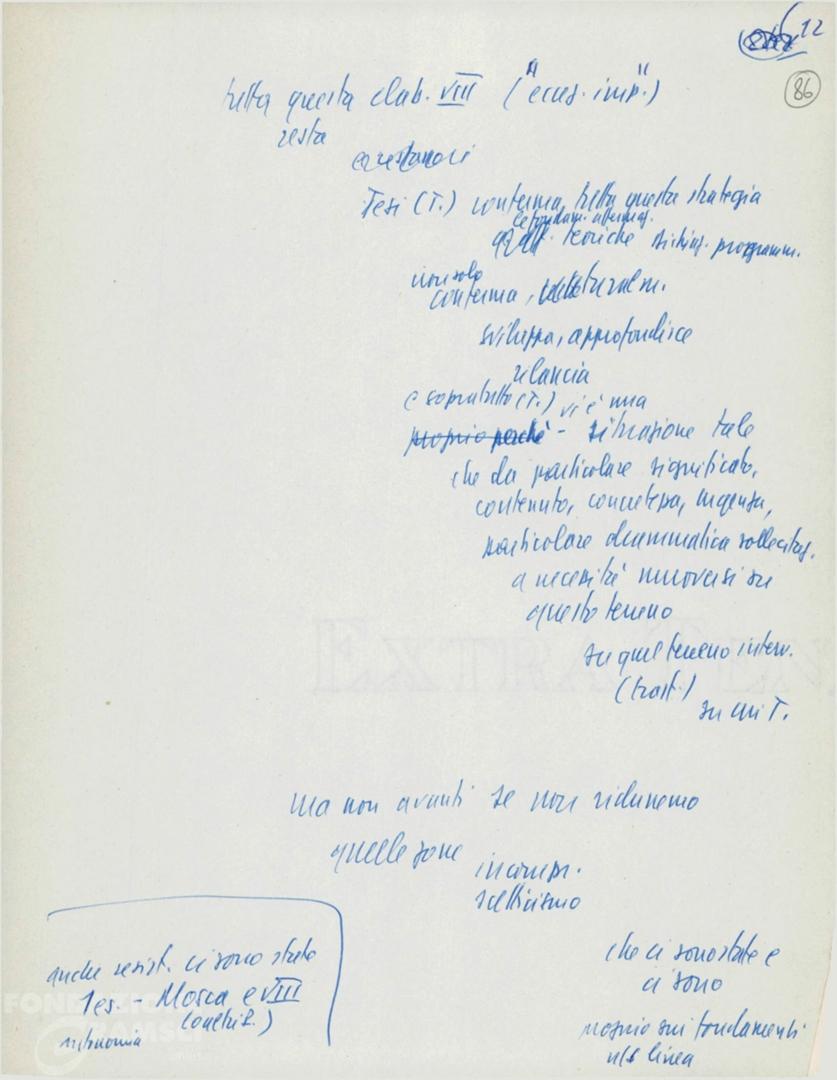 12
86
tutta questa elab. VIII ("acces. imp.")
resta
Tesi (T.) conferma tutta questa strategia
teoriche programm.
non solo
conferma, naturalm.
sviluppa, approfondisce
rilancia
e sopratutto (T.) vi è una
proprio perché - situazione tale
che da particolare significato,
contenuto, concretezza, urgenza,
particolare drammatica sollecitaz.
a necessità muoversi su
questo terreno
EXTRA
su quel terreno interv.
(trasf.)
su cui T.
ma non avanti se non riduciamo
quelle zone
incompr.
scetticismo
che ci sono state e
ci sono
proprio sui fondamenti
n/s linea
anche resist. ci sono state
Tes. - Mosca e VIII
autonomia
FONDAZIONE
GRAMSCI